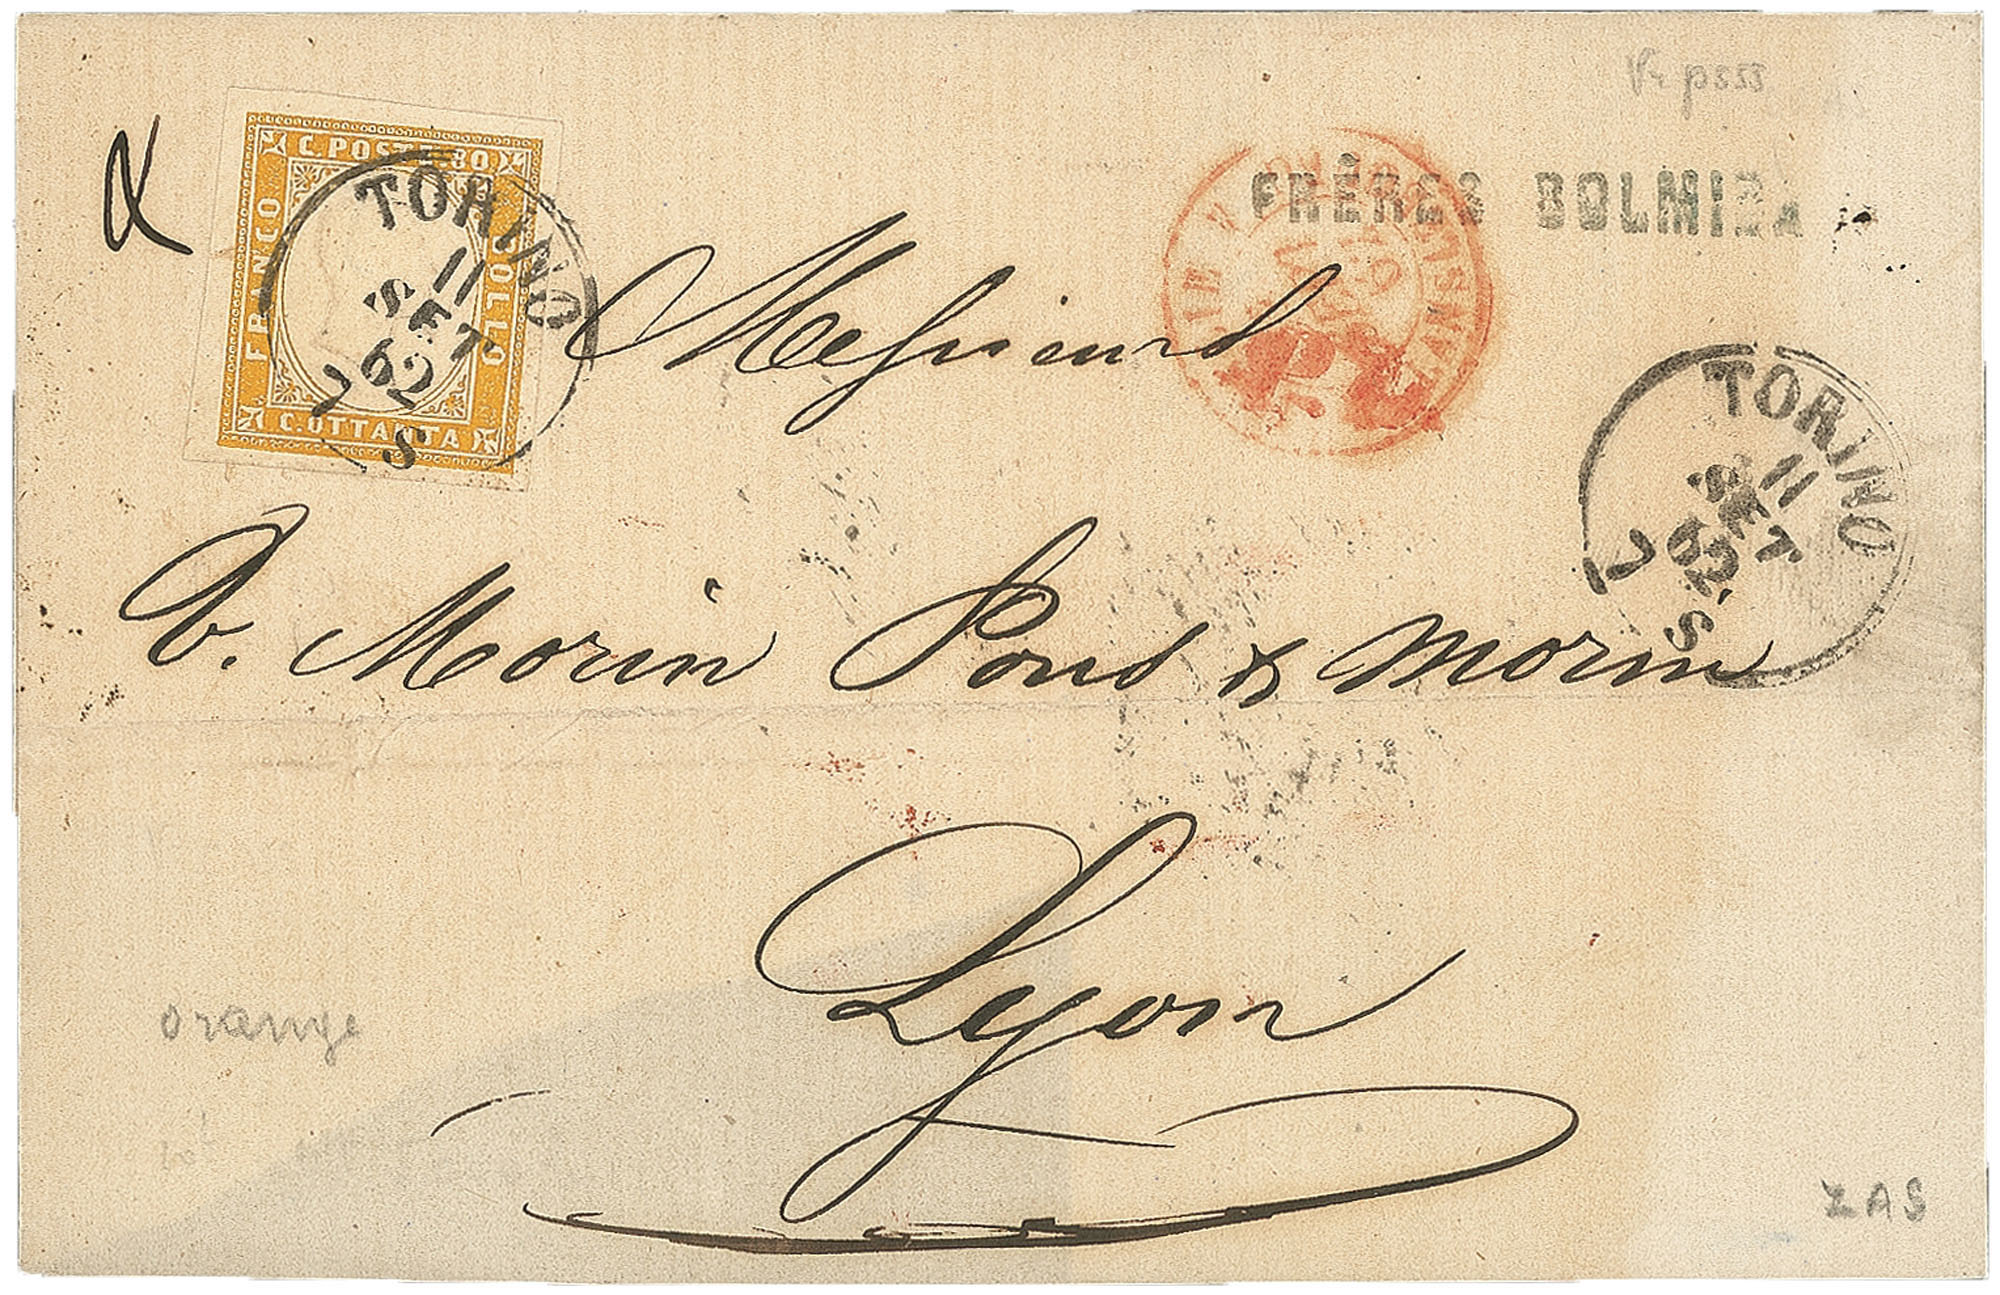 Vr p 555
C. POSTE. 80
FRANCO
BOLLO
C. OTTANTA
TORINO
11
SET
62
7 S
FRÈRES BOLMIDA
TORINO
11
SET
62
7 S
Messieurs
V. Morin Pons & Morin
Lyon
orange
ZAS